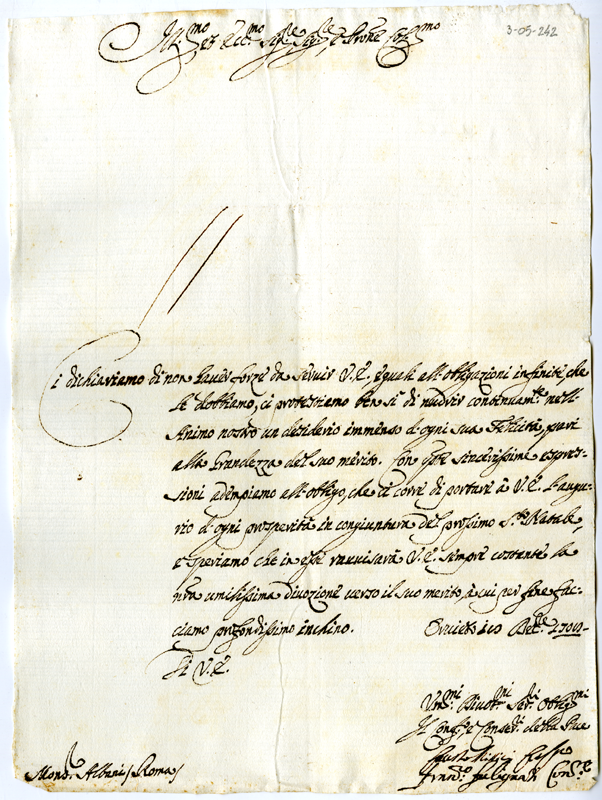 3-05-242
Ill.mo et Ecc.mo Sig.re Sig.re e Prone Col.mo
Ci dichiariamo di non haver forze da servir V.E. eguali all'obligazioni infinite, che
Le dobbiamo, ci protestiamo ben sì di nudrir continuam.te nell'
Animo nostro un desiderio immenso d'ogni sua Felicità, pari
alla Grandezza del suo merito. Con q.ste sincerissime espres-
sioni adempiamo all'obligo, che ci corre di portare à V.E. l'augu-
rio d'ogni prosperità in congiuntura del prossimo S.to Natale
e speriamo che in esse ravvisarà V.E. sempre costante la
nra umilissima divozione verso il suo merito, à cui per fine fac-
ciamo profondissimo inchino. Orvieto 10 Xbre
Di V.E.
Um.mi Divot.mi Ser.ri Oblig.mi
Il Conf.re e Conser.ri della
Mons.r Albani / Roma /